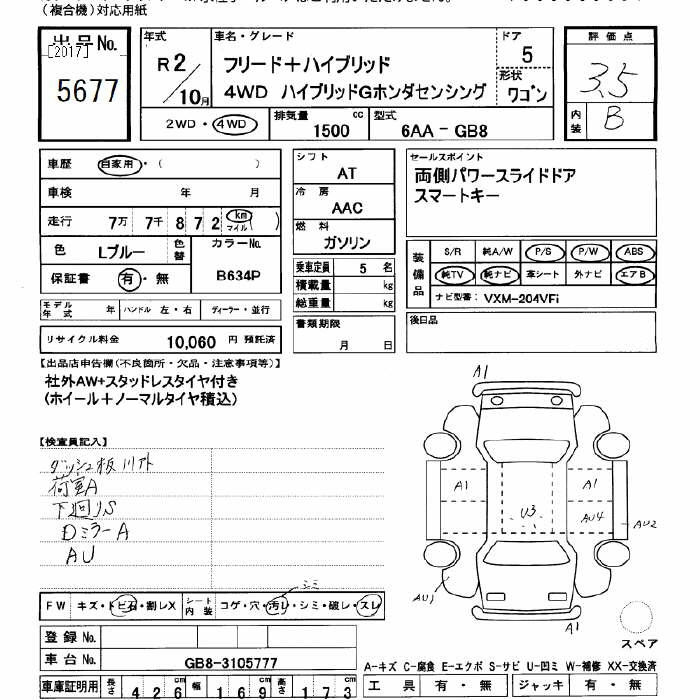 （複合機）対応用紙
出品No.
[2017]
5677
年式
R2/10月
車名・グレード
フリード＋ハイブリッド
4WD ハイブリッドGホンダセンシング
ドア
5
形状
ワゴン
評価点
3.5
内装
B
2WD・4WD
排気量
1500 cc
型式
6AA－GB8
車歴 自家用・（ ）
車検 年 月
走行 7万 7千 8 7 2 km マイル（ ）
色 Lブルー 色替
カラーNo.
B634P
保証書 有・無
モデル年式 年 ハンドル 左・右 ディーラー・並行
リサイクル料金 10,060 円 預託済
シフト
AT
冷房
AAC
燃料
ガソリン
乗車定員 5 名
積載量 kg
総重量 kg
書類期限
月 日
セールスポイント
両側パワースライドドア
スマートキー
装備品
S/R 純A/W P/S P/W ABS
純TV 純ナビ 革シート 外ナビ エアB
ナビ型番： VXM-204VFi
後日品
【出品店申告欄（不良箇所・欠品・注意事項等）】
社外AW+スタッドレスタイヤ付き
（ホイール＋ノーマルタイヤ積込）
【検査員記入】
荷室A
下廻りS
DミラーA
AU
A1
A1
A1
U3
AU4
AU2
AU1
A1
スペア
シミ
FW キズ・トビ石・割レX
シート内装 コゲ・穴・汚レ・シミ・破レ・スレ
登録No.
車台No. GB8-3105777
車庫証明用 長さ 4 2 6 cm 幅 1 6 9 cm 高さ 1 7 3 cm
A-キズ C-腐食 E-エクボ S-サビ U-凹ミ W-補修 XX-交換済
工具 有・無 ジャッキ 有・無